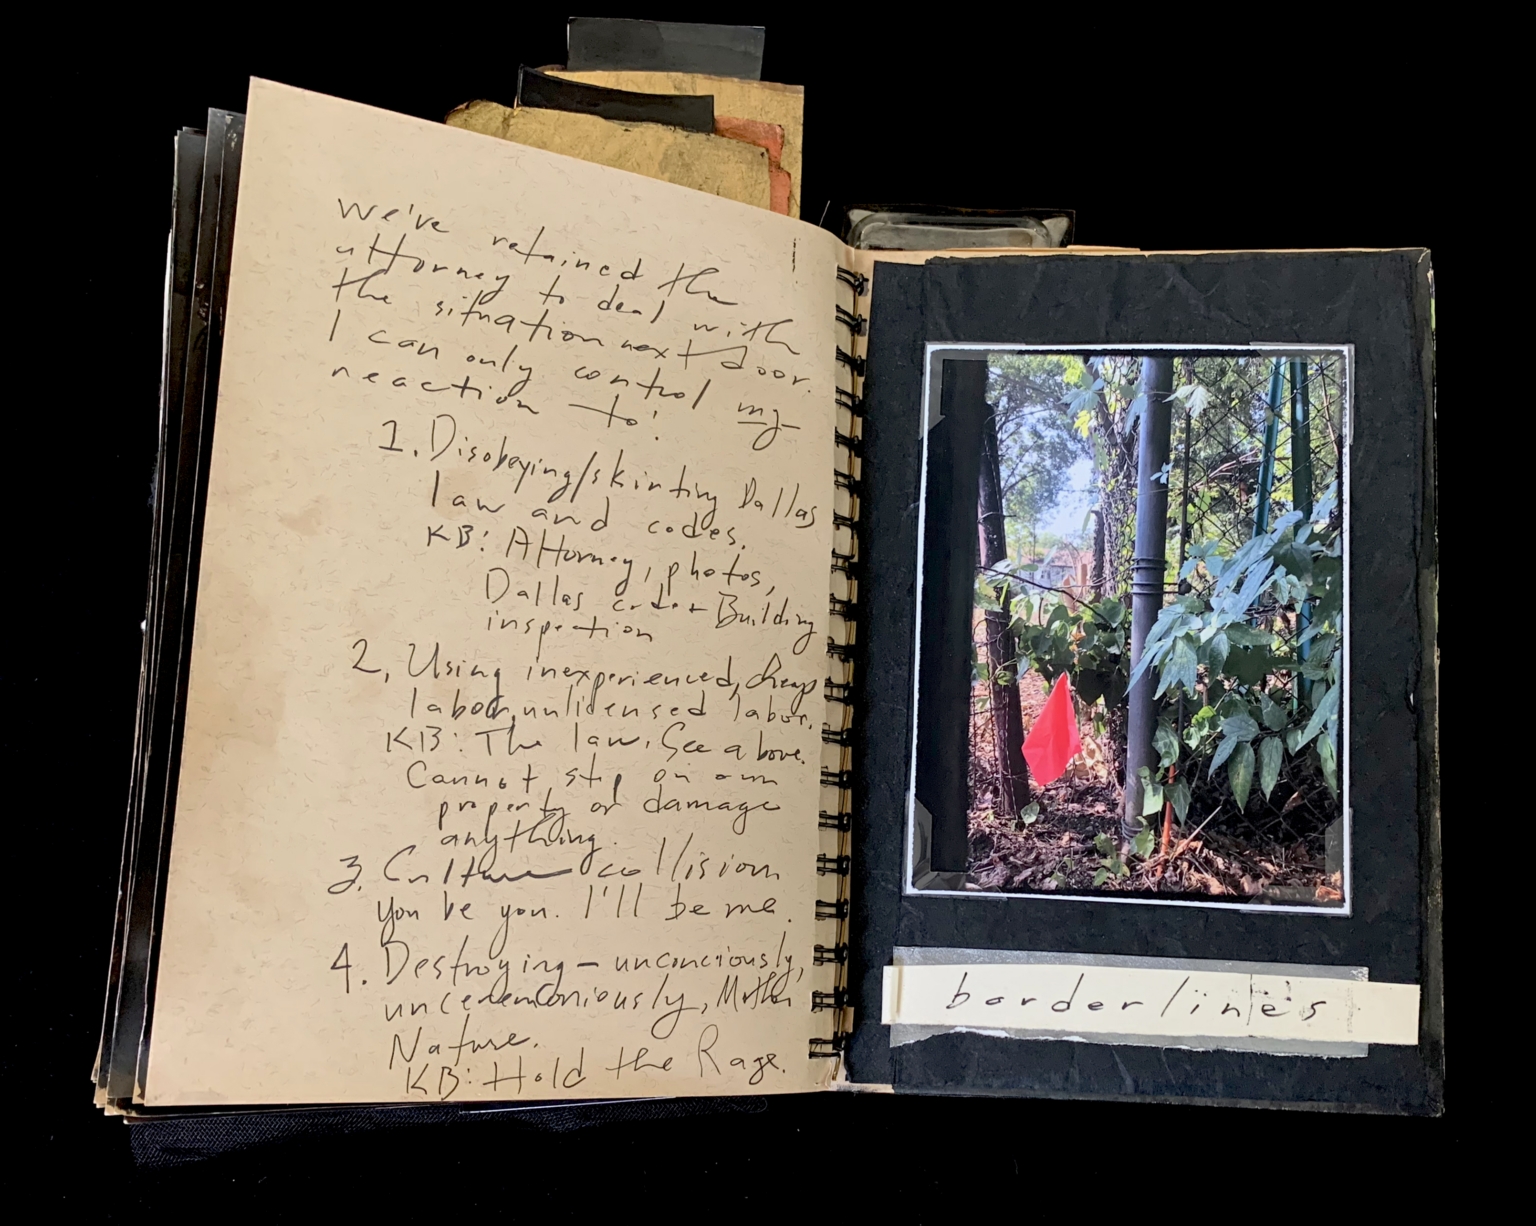 We've retained the
attorney to deal with
the situation next door.
I can only control my
reaction to:
1. Disobeying/skirting Dallas
law and codes.
KB: Attorney, photos,
Dallas code + Building
inspection
2. Using inexperienced, cheap
labor, unlidensed labor.
KB: The law. See above.
Cannot step on our
property or damage
anything.
3. Culture collision
You be you. I'll be me.
4. Destroying - unconciously,
unceremoniously, Mother
Nature.
KB: Hold the Rage.
borderlines